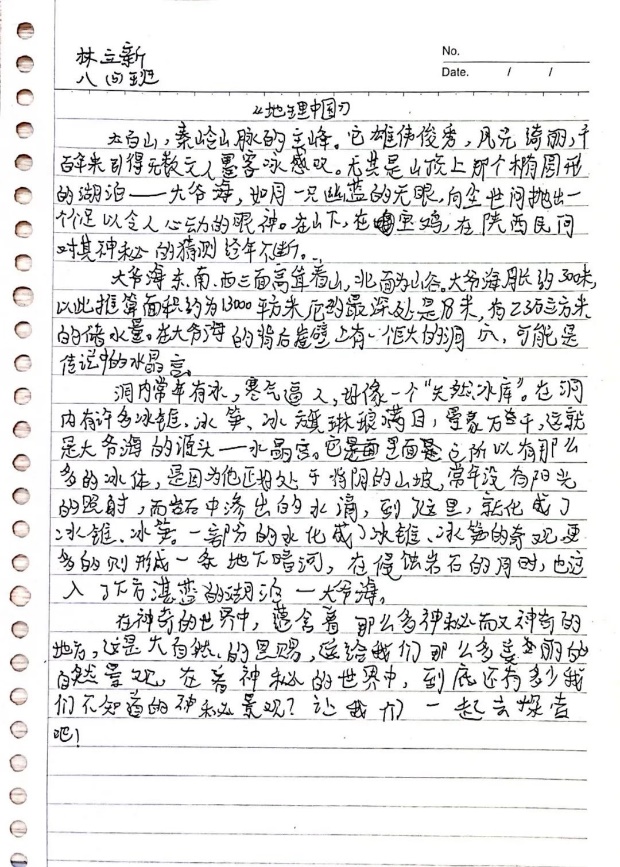 林立新
八(四)班
No.
Date. / /
《地理中国》
太白山,秦岭山脉的主峰。它雄伟俊秀,风光绮丽,千
百年来引得无数文人墨客冰感叹。尤其是山顶上那个椭圆形
的湖泊——大爷海,如同一只幽蓝的天眼,向尘世间抛出一
个足以令人心动的眼神。在山下,在宝鸡,在陕西民间
对其神秘的猜测经年不断。
大爷海东、南、西三面高耸着山,北面为山谷。大爷海周长约300米,
以此推算面积约为13000平方米 最深处是18米,有23万三方米
的储水量。在大爷海的背后崖壁上有一个巨大的洞穴,可能是
传说中的水晶宫。
洞内常年有冰,寒气逼人,好像一个“天然冰库”。在洞
内有许多冰锥、冰笋、冰旗琳琅满目,景象万千,这就
是大爷海的源头——水晶宫。它里面之所以有那么
多的冰体,是因为他正好处于背阴的山坡,常年没有阳光
的照射,而岩石中渗出的水滴,到了这里,就化成了
冰锥、冰笋。一部分的水化成了冰锥、冰笋的奇观,更
多的则形成一条地下暗河,在侵蚀岩石的同时,也注
入了下方湛蓝的湖泊—大爷海。
在神奇的世界中,蕴含着那么多神秘而又神奇的
地方,这是大自然的恩赐,送给我们那么多美丽的
自然景观,在着神秘的世界中,到底还有多少我
们不知道的神秘景观?让我们一起去探查
吧!